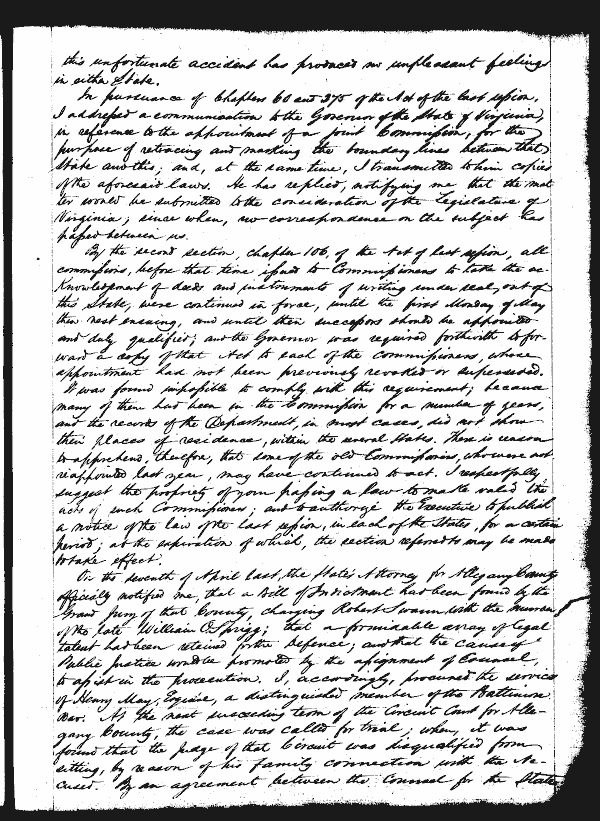 this unfortunate accident has produced no unpleasant feelings
in either State.
In pursuance of Chapters 60 and 275 of the Act of the last session,
I addressed a communication to the Governor of the State of Virginia,
in reference to the appointment of a joint Commission, for the
purpose of retracing and marking the boundary lines between that
State and this; and, at the same time, I transmitted to him copies
of the aforesaid laws. He has replied, notifying me, that the mat
ter would be submitted to the consideration of the Legislature of
Virginia; since when, no correspondence on the subject has
passed between us.
By the second section, chapter 106, of the Act of last session, all
commissions, before that time issued to Commissioners to take the ac-
knowledgment of deeds and instruments of writing under seal, out of
this State, were continued in force, until the first Monday of May
then next ensuing, and until their successors should be appointed
and duly qualified; and the Governor was required forthwith to for-
ward a copy of that Act to each of the Commissioners, whose
appointment had not been previously revoked or superseded.
It was found impossible to comply with this requirement; because
many of them had been in the Commission for a number of years,
and the records of the Department, in most cases, did not show
their places of residence, within the several States. There is reason
to apprehend, therefore, that some of the old Commissioners, who were not
reappointed last year, may have continued to act. I respectfully
suggest the propriety of your passing a law to make valid the
acts of such Commissioners; and to authorize the Executive to publish
a notice of the law of the last session, in each of the States, for a certain
period; at the expiration of which, the section referred to may be made
to take effect.
On the seventh of April last, the State's Attorney for Allegany County
officially notified me, that a Bill of Indictment had been found by the
Grand Jury of that County, charging Robert Swann with the murder
of the late William O. Sprigg; that a formidable array of legal
talent had been retained for the Defence; and that the cause of
Public Justice would be promoted by the assignment of Counsel,
to assist in the prosecution. I, accordingly, procured the service
of Henry May, Esquire, a distinguished member of the Baltimore
Bar. At the next succeeding term of the Circuit Court for Alle-
gany County, the case was called for trial; when, it was
found that the judge of that Circuit was disqualified from
sitting, by reason of his family connection with the Ac-
cused. By an agreement between the Counsel for the State